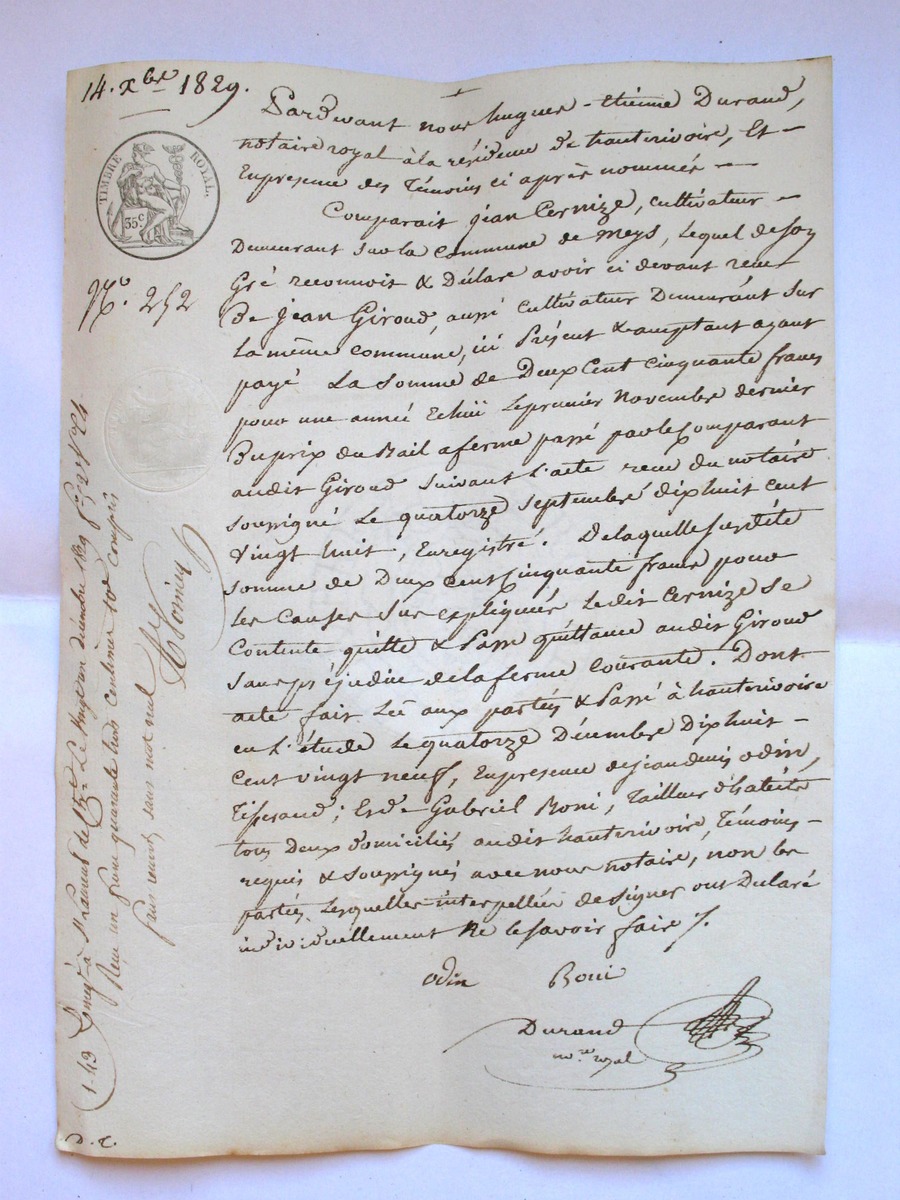 14. Xbre 1829.
TIMBRE ROYAL.
35c
N°. 252
Pardevant nous hugues-étienne Durand,
notaire royal à la résidence de hauterivoire, Et
En presence des Témoins ci après nommés
Comparait jean Cernize, cultivateur
Demeurant sur la Commune de meys, lequel de son
Gré reconnoit & Déclare avoir ci devant reçu
De jean Giroud, aussi cultivateur Demeurant sur
la même commune, ici Présent & acceptant ayant
payé La somme de Deux Cent cinquante francs
pour une année Echuë le premier Novembre dernier
Du prix du Bail a ferme passé par le Comparant
audit Giroud suivant l'acte recu du notaire
soussigné Le quatorze septembre dix huit cent
Vingt huit, Enregistré. De laquelle susditte
somme de Deux cent Cinquante francs pour
les Causes sus expliquées Ledit Cernize se
Contente quitte & Passe quittance audit Giroud
Sans préjudice de la ferme Courante. Dont
acte fait Lû aux parties & Passé à hauterivoire
en L'étude Le quatorze Décembre Dix huit
Cent vingt neuf, En presence de jean denis odin,
Tisserand; Et de Gabriel Boni, Tailleur d'habits
tous Deux domiciliés audit hauterivoire, Témoins
requis & soussignés avec nous notaire, non les
parties Lesquelles interpellées de signer ont Déclaré
individuellement Ne le savoir faire /.
odin Boni
Durand
nore royal
143 Enregé à St Laurent de Le Vingt un décembre 1829
Reçu un franc quarante trois centimes 10e compris
sans renvoi, sans mot nul
D. C.